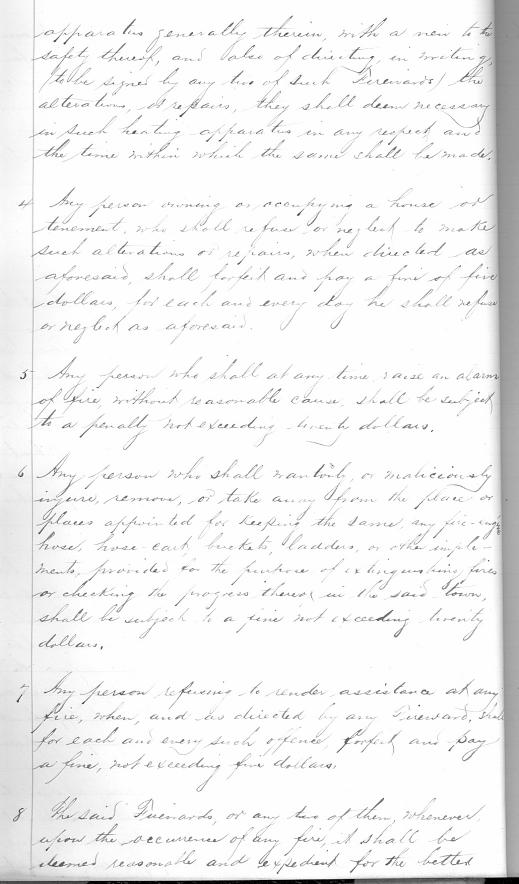 apparatus generally therein, with a view to the
safety thereof, and also of directing, in writing,
(to be signed by any two of such Firewards) the
alterations, or repairs, they shall deem necessary
in such heating apparatus in any respect, and
the time within which the same shall be made.
4 Any person owning or occupying a house or
tenement, who shall refuse or neglect to make
such alterations or repairs, when directed as
aforesaid, shall forfeit and pay a fine of five
dollars, for each and every day he shall refuse
or neglect as aforesaid.
5 Any person who shall at any time raise an alarm
of fire, without reasonable cause, shall be subject
to a penalty not exceeding twenty dollars.
6 Any person who shall wantonly, or maliciously
injure, remove, or take away from the place or
places appointed for keeping the same, any fire-engine
hose, hose-cart, buckets, ladders, or other imple-
ments, provided for the purpose of extinguishing fires
or checking the progress thereof in the said town,
shall be subject to a fine not exceeding twenty
dollars.
7 Any person refusing to render assistance at any
fire, when, and as directed by any Fireward, shall
for each and every such offence, forfeit and pay
a fine, not exceeding five dollars.
8 The said Firewards, or any two of them, whenever,
upon the occurrence of any fire, it shall be
deemed reasonable and expedient for the better